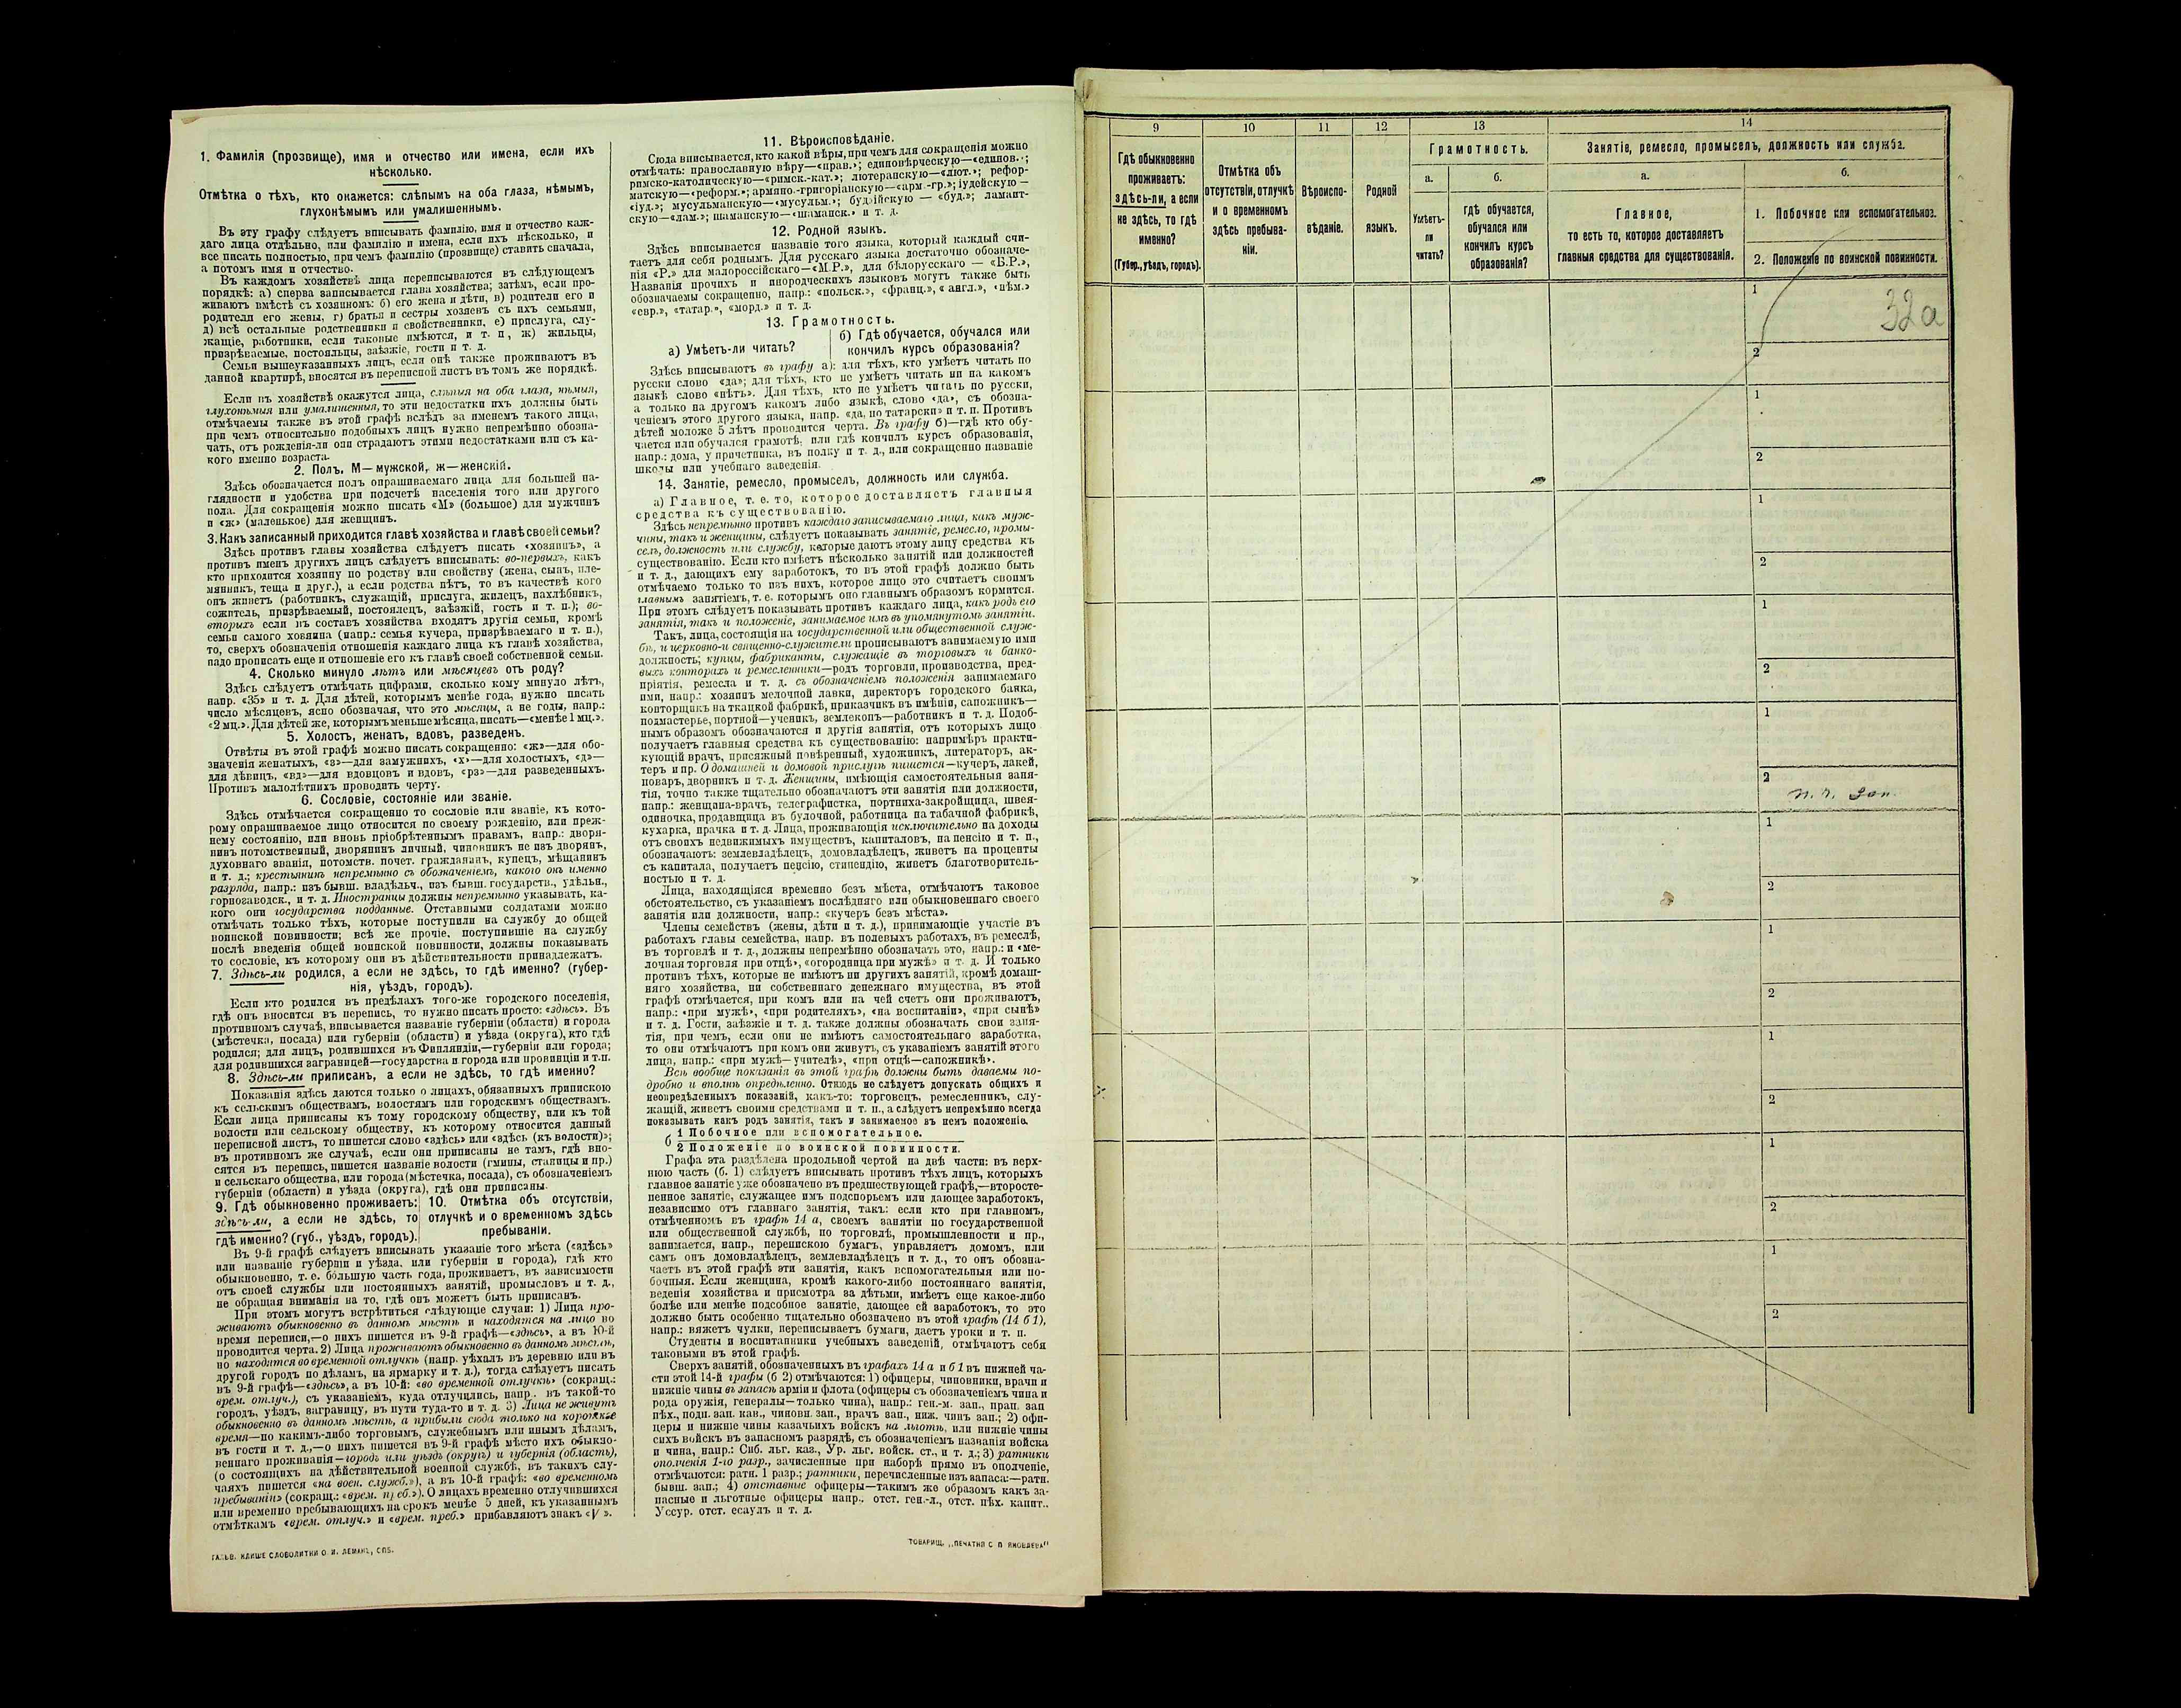 1. Фамилія (прозвище), имя и отчество или имена, если ихъ
нѣсколько.
Отмѣтка о тѣхъ, кто окажется: слѣпымъ на оба глаза, нѣмымъ,
глухонѣмымъ или умалишеннымъ.
Въ эту графу слѣдуетъ вписывать фамилію, имя и отчество каж-
даго лица отдѣльно, или фамилію и имена, если ихъ нѣсколько, и
все писать полностью, при чемъ фамилію (прозвище) ставить сначала,
а потомъ имя и отчество.
Въ каждомъ хозяйствѣ лица переписываются въ слѣдующемъ
порядкѣ: а) сперва записывается глава хозяйства; затѣмъ, если про-
живаютъ вмѣстѣ съ хозяиномъ: б) его жена и дѣти, в) родители его и
родители его жены, г) братья и сестры хозяевъ съ ихъ семьями,
д) всѣ остальные родственники и свойственники, е) прислуга, слу-
жащіе, работники, если таковые имѣются, и т. п., ж) жильцы,
призрѣваемые, постояльцы, заѣзжіе, гости и т. д.
Семьи вышеуказанныхъ лицъ, если онѣ также проживаютъ въ
данной квартирѣ, вносятся въ переписной листъ въ томъ же порядкѣ.
Если въ хозяйствѣ окажутся лица, слѣпыя на оба глаза, нѣмыя,
глухонѣмыя или умалишенныя, то эти недостатки ихъ должны быть
отмѣчаемы также въ этой графѣ вслѣдъ за именемъ такого лица,
при чемъ относительно подобныхъ лицъ нужно непремѣнно обозна-
чать, отъ рожденія-ли они страдаютъ этими недостатками или съ ка-
кого именно возраста.
2. Полъ. М—мужской, ж—женскій.
Здѣсь обозначается полъ опрашиваемаго лица для большей на-
глядности и удобства при подсчетѣ населенія того или другого
пола. Для сокращенія можно писать «М» (большое) для мужчинъ
и «ж» (маленькое) для женщинъ.
3. Какъ записанный приходится главѣ хозяйства и главѣ своей семьи?
Здѣсь противъ главы хозяйства слѣдуетъ писать «хозяинъ», а
противъ именъ другихъ лицъ слѣдуетъ вписывать: во-первыхъ, какъ
кто приходится хозяину по родству или свойству (жена, сынъ, пле-
мянникъ, теща и друг.), а если родства нѣтъ, то въ качествѣ кого
онъ живетъ (работникъ, служащій, прислуга, жилецъ, нахлѣбникъ,
сожитель, призрѣваемый, постоялецъ, заѣзжій, гость и т. п.); во-
вторыхъ если въ составъ хозяйства входятъ другія семьи, кромѣ
семьи самого хозяина (напр.: семья кучера, призрѣваемаго и т. п.),
то, сверхъ обозначенія отношенія каждаго лица къ главѣ хозяйства,
надо прописать еще и отношеніе его къ главѣ своей собственной семьи.
4. Сколько минуло лѣтъ или мѣсяцевъ отъ роду?
Здѣсь слѣдуетъ отмѣчать цифрами, сколько кому минуло лѣтъ,
напр. «35» и т. д. Для дѣтей, которымъ менѣе года, нужно писать
число мѣсяцевъ, ясно обозначая, что это мѣсяцы, а не годы, напр.:
«2 мц.». Для дѣтей же, которымъ меньше мѣсяца, писать—«менѣе 1 мц.».
5. Холостъ, женатъ, вдовъ, разведенъ.
Отвѣты въ этой графѣ можно писать сокращенно: «ж»—для обо-
значенія женатыхъ, «з»—для замужнихъ, «х»—для холостыхъ, «д»—
для дѣвицъ, «вд»—для вдовцовъ и вдовъ, «рз»—для разведенныхъ.
Противъ малолѣтнихъ проводить черту.
6. Сословіе, состояніе или званіе.
Здѣсь отмѣчается сокращенно то сословіе или званіе, къ кото-
рому опрашиваемое лицо относится по своему рожденію, или преж-
нему состоянію, или вновь пріобрѣтеннымъ правамъ, напр.: дворя-
нинъ потомственный, дворянинъ личный, чиновникъ не изъ дворянъ,
духовнаго званія, потомств. почет. гражданинъ, купецъ, мѣщанинъ
и т. д.; крестьянинъ непремѣнно съ обозначеніемъ, какого онъ именно
разряда, напр.: изъ бывш. владѣльч., изъ бывш. государств., удѣльн.,
горнозаводск., и т. д. Иностранцы должны непремѣнно указывать, ка-
кого они государства подданные. Отставными солдатами можно
отмѣчать только тѣхъ, которые поступили на службу до общей
воинской повинности; всѣ же прочіе, поступившіе на службу
послѣ введенія общей воинской повинности, должны показывать
то сословіе, къ которому они въ дѣйствительности принадлежатъ.
7. Здѣсь-ли родился, а если не здѣсь, то гдѣ именно? (губер-
нія, уѣздъ, городъ).
Если кто родился въ предѣлахъ того-же городского поселенія,
гдѣ онъ вносится въ перепись, то нужно писать просто: «здѣсь». Въ
противномъ случаѣ, вписывается названіе губерніи (области) и города
(мѣстечка, посада) или губерніи (области) и уѣзда (округа), кто гдѣ
родился; для лицъ, родившихся въ Финляндіи,—губерніи или города;
для родившихся заграницей—государства и города или провинціи и т.п.
8. Здѣсь-ли приписанъ, а если не здѣсь, то гдѣ именно?
Показанія здѣсь даются только о лицахъ, обязанныхъ припискою
къ сельскимъ обществамъ, волостямъ или городскимъ обществамъ.
Если лица приписаны къ тому городскому обществу, или къ той
волости или сельскому обществу, къ которому относится данный
переписной листъ, то пишется слово «здѣсь» или «здѣсь (къ волости)»;
въ противномъ же случаѣ, если они приписаны не тамъ, гдѣ вно-
сятся въ перепись, пишется названіе волости (гмины, станицы и пр.)
и сельскаго общества, или города (мѣстечка, посада), съ обозначеніемъ
губерніи (области) и уѣзда (округа), гдѣ они приписаны.
9. Гдѣ обыкновенно проживаетъ: 10. Отмѣтка объ отсутствіи,
здѣсь-ли, а если не здѣсь, то отлучкѣ и о временномъ здѣсь
гдѣ именно? (губ., уѣздъ, городъ). пребываніи.
Въ 9-й графѣ слѣдуетъ вписывать указаніе того мѣста («здѣсь»
или названіе губерніи и уѣзда, или губерніи и города), гдѣ кто
обыкновенно, т. е. большую часть года, проживаетъ, въ зависимости
отъ своей службы или постоянныхъ занятій, промысловъ и т. д.,
не обращая вниманія на то, гдѣ онъ можетъ быть приписанъ.
При этомъ могутъ встрѣтиться слѣдующіе случаи: 1) Лица про-
живаютъ обыкновенно въ данномъ мѣстѣ и находятся на лицо во
время переписи,—о нихъ пишется въ 9-й графѣ—«здѣсь», а въ 10-й
проводится черта. 2) Лица проживаютъ обыкновенно въ данномъ мѣстѣ,
но находятся во временной отлучкѣ (напр. уѣхалъ въ деревню или въ
другой городъ по дѣламъ, на ярмарку и т. д.), тогда слѣдуетъ писать
въ 9-й графѣ—«здѣсь», а въ 10-й: «во временной отлучкѣ» (сокращ.:
врем. отлуч.), съ указаніемъ, куда отлучились, напр. въ такой-то
городъ, уѣздъ, заграницу, въ пути туда-то и т. д. 3) Лица не живутъ
обыкновенно въ данномъ мѣстѣ, а прибыли сюда только на короткое
время—по какимъ-либо торговымъ, служебнымъ или инымъ дѣламъ,
въ гости и т. д.,—о нихъ пишется въ 9-й графѣ мѣсто ихъ обыкно-
веннаго проживанія—городъ или уѣздъ (округъ) и губернія (область),
(о состоящихъ на дѣйствительной военной службѣ, въ такихъ слу-
чаяхъ пишется «на воен. служб.»), а въ 10-й графѣ: «во временномъ
пребываніи» (сокращ.: «врем. преб.»). О лицахъ временно отлучившихся
или временно пребывающихъ на срокъ менѣе 5 дней, къ указаннымъ
отмѣткамъ «врем. отлуч.» и «врем. преб.» прибавляютъ знакъ «V».
ГАЛЬВ. КЛИШЕ СЛОВОЛИТНИ О. И. ЛЕМАНЪ, СПБ.
11. Вѣроисповѣданіе.
Сюда вписывается, кто какой вѣры, при чемъ для сокращенія можно
отмѣчать: православную вѣру—«прав.»; единовѣрческую—«единов.»;
римско-католическую—«римск.-кат.»; лютеранскую—«лют.»; рефор-
матскую—«реформ.»; армяно-григоріанскую—«арм.-гр.»; іудейскую—
«іуд.»; мусульманскую—«мусульм.»; буддійскую — «буд.»; ламаит-
скую—«лам.»; шаманскую—«шаманск.» и т. д.
12. Родной языкъ.
Здѣсь вписывается названіе того языка, который каждый счи-
таетъ для себя роднымъ. Для русскаго языка достаточно обозначе-
нія «Р.» для малороссійскаго—«М.Р.», для бѣлорусскаго — «Б.Р.»,
Названія прочихъ и инородческихъ языковъ могутъ также быть
обозначаемы сокращенно, напр.: «польск.», «франц.», «англ.», «нѣм.»
«евр.», «татар.», «морд.» и т. д.
13. Грамотность.
а) Умѣетъ-ли читать? б) Гдѣ обучается, обучался или
кончилъ курсъ образованія?
Здѣсь вписываютъ въ графу а): для тѣхъ, кто умѣетъ читать по
русски слово «да»; для тѣхъ, кто не умѣетъ читать ни на какомъ
языкѣ слово «нѣтъ». Для тѣхъ, кто не умѣетъ читать по русски,
а только на другомъ какомъ либо языкѣ, слово «да», съ обозна-
ченіемъ этого другого языка, напр. «да, по татарски» и т. п. Противъ
дѣтей моложе 5 лѣтъ проводится черта. Въ графу б)—гдѣ кто обу-
чается или обучался грамотѣ, или гдѣ кончилъ курсъ образованія,
напр.: дома, у причетника, въ полку и т. д., или сокращенно названіе
школы или учебнаго заведенія.
14. Занятіе, ремесло, промыселъ, должность или служба.
а) Главное, т. е. то, которое доставляетъ главныя
средства къ существованію.
Здѣсь непремѣнно противъ каждаго записываемаго лица, какъ муж-
чины, такъ и женщины, слѣдуетъ показывать занятіе, ремесло, промы-
селъ, должность или службу, которые даютъ этому лицу средства къ
существованію. Если кто имѣетъ нѣсколько занятій или должностей
и т. д., дающихъ ему заработокъ, то въ этой графѣ должно быть
отмѣчаемо только то изъ нихъ, которое лицо это считаетъ своимъ
главнымъ занятіемъ, т. е. которымъ оно главнымъ образомъ кормится.
При этомъ слѣдуетъ показывать противъ каждаго лица, какъ родъ его
занятія, такъ и положеніе, занимаемое имъ въ упомянутомъ занятіи.
Такъ, лица, состоящія на государственной или общественной служ-
бѣ, и церковно-и священно-служители прописываютъ занимаемую ими
должность; купцы, фабриканты, служащіе въ торговыхъ и банко-
выхъ конторахъ и ремесленники—родъ торговли, производства, пред-
пріятія, ремесла и т. д. съ обозначеніемъ положенія занимаемаго
ими, напр.: хозяинъ мелочной лавки, директоръ городского банка,
конторщикъ на ткацкой фабрикѣ, приказчикъ въ имѣніи, сапожникъ—
подмастерье, портной—ученикъ, землекопъ—работникъ и т. д. Подоб-
нымъ образомъ обозначаются и другія занятія, отъ которыхъ лицо
получаетъ главныя средства къ существованію: напримѣръ практи-
кующій врачъ, присяжный повѣренный, художникъ, литераторъ, ак-
теръ и пр. О домашней и домовой прислугѣ пишется—кучеръ, лакей,
поваръ, дворникъ и т. д. Женщины, имѣющія самостоятельныя заня-
тія, точно также тщательно обозначаютъ эти занятія или должности,
напр.: женщина-врачъ, телеграфистка, портниха-закройщица, швея-
одиночка, продавщица въ булочной, работница на табачной фабрикѣ,
кухарка, прачка и т. д. Лица, проживающія исключительно на доходы
отъ своихъ недвижимыхъ имуществъ, капиталовъ, на пенсію и т. п.,
обозначаютъ: землевладѣлецъ, домовладѣлецъ, живетъ на проценты
съ капитала, получаетъ пенсію, стипендію, живетъ благотворитель-
ностью и т. д.
Лица, находящіяся временно безъ мѣста, отмѣчаютъ таковое
обстоятельство, съ указаніемъ послѣдняго или обыкновеннаго своего
занятія или должности, напр.: «кучеръ безъ мѣста».
Члены семействъ (жены, дѣти и т. д.), принимающіе участіе въ
работахъ главы семейства, напр. въ полевыхъ работахъ, въ ремеслѣ,
въ торговлѣ и т. д., должны непремѣнно обозначать это, напр.: и «ме-
лочная торговля при отцѣ», «огородница при мужѣ» и т. д. И только
противъ тѣхъ, которые не имѣютъ ни другихъ занятій, кромѣ домаш-
няго хозяйства, ни собственнаго денежнаго имущества, въ этой
графѣ отмѣчается, при комъ или на чей счетъ они проживаютъ,
напр.: «при мужѣ», «при родителяхъ», «на воспитаніи», «при сынѣ»
и т. д. Гости, заѣзжіе и т. д. также должны обозначать свои заня-
тія, при чемъ, если они не имѣютъ самостоятельнаго заработка,
то они отмѣчаютъ при комъ они живутъ, съ указаніемъ занятій этого
лица, напр.: «при мужѣ—учителѣ», «при отцѣ—сапожникѣ».
Всѣ вообще показанія въ этой графѣ должны быть даваемы по-
дробно и вполнѣ опредѣленно. Отнюдь не слѣдуетъ допускать общихъ и
неопредѣленныхъ показаній, какъ-то: торговецъ, ремесленникъ, слу-
жащій, живетъ своими средствами и т. п., а слѣдуетъ непремѣнно всегда
показывать какъ родъ занятія, такъ и занимаемое въ немъ положеніе.
1 Побочное или вспомогательное.
б
2 Положеніе по воинской повинности.
Графа эта раздѣлена продольной чертой на двѣ части: въ верх-
нюю часть (б. 1) слѣдуетъ вписывать противъ тѣхъ лицъ, которыхъ
главное занятіе уже обозначено въ предшествующей графѣ,—второсте-
пенное занятіе, служащее имъ подспорьемъ или дающее заработокъ,
независимо отъ главнаго занятія, такъ: если кто при главномъ,
отмѣченномъ въ графѣ 14 а, своемъ занятіи по государственной
или общественной службѣ, по торговлѣ, промышленности и пр.,
занимается, напр., перепискою бумагъ, управляетъ домомъ, или
самъ онъ домовладѣлецъ, землевладѣлецъ и т. д., то онъ обозна-
чаетъ въ этой графѣ эти занятія, какъ вспомогательныя или по-
бочныя. Если женщина, кромѣ какого-либо постояннаго занятія,
веденія хозяйства и присмотра за дѣтьми, имѣетъ еще какое-либо
болѣе или менѣе подсобное занятіе, дающее ей заработокъ, то это
должно быть особенно тщательно обозначено въ этой графѣ (14 б 1),
напр.: вяжетъ чулки, переписываетъ бумаги, даетъ уроки и т. п.
Студенты и воспитанники учебныхъ заведеній, отмѣчаютъ себя
таковыми въ этой графѣ.
Сверхъ занятій, обозначенныхъ въ графахъ 14 а и б 1 въ нижней ча-
сти этой 14-й графы (б 2) отмѣчаются: 1) офицеры, чиновники, врачи и
нижніе чины въ запасѣ арміи и флота (офицеры съ обозначеніемъ чина и
рода оружія, генералы—только чина), напр.: ген.-м. зап., прап. зап
пѣх., подп. зап. кав., чиновн. зап., врачъ зап., ниж. чинъ зап.; 2) офи-
церы и нижніе чины казачьихъ войскъ на льготѣ, или нижніе чины
сихъ войскъ въ запасномъ разрядѣ, съ обозначеніемъ названія войска
и чина, напр.: Сиб. льг. каз., Ур. льг. войск. ст., и т. д.; 3) ратники
ополченія 1-го разр., зачисленные при наборѣ прямо въ ополченіе,
отмѣчаются: ратн. 1 разр.; ратники, перечисленные изъ запаса:—ратн.
бывш. зап.; 4) отставные офицеры—такимъ же образомъ какъ за-
пасные и льготные офицеры напр., отст. ген.-л., отст. пѣх. капит.,
Уссур. отст. есаулъ и т. д.
ТОВАРИЩ. „ПЕЧАТНЯ С. П. ЯКОВЛЕВА"
9 10 11 12 13 14
Гдѣ обыкновенно
проживаетъ:
здѣсь-ли, а если
не здѣсь, то гдѣ
именно?
(Губер., уѣздъ, городъ).
Отмѣтка объ
отсутствіи, отлучкѣ
и о временномъ
здѣсь пребыва-
ніи.
Вѣроиспо-
вѣданіе.
Родной
языкъ.
Грамотность.
а.
Умѣетъ-
ли
читать?
б.
гдѣ обучается,
обучался или
кончилъ курсъ
образованія?
Занятіе, ремесло, промыселъ, должность или служба.
а.
Главное,
то есть то, которое доставляетъ
главныя средства для существованія.
б.
1. Побочное или вспомогательное.
2. Положеніе по воинской повинности.
1
32а
2
1
2
1
2
1
2
1
2
1
2
1
2
1
2
1
2
1
2